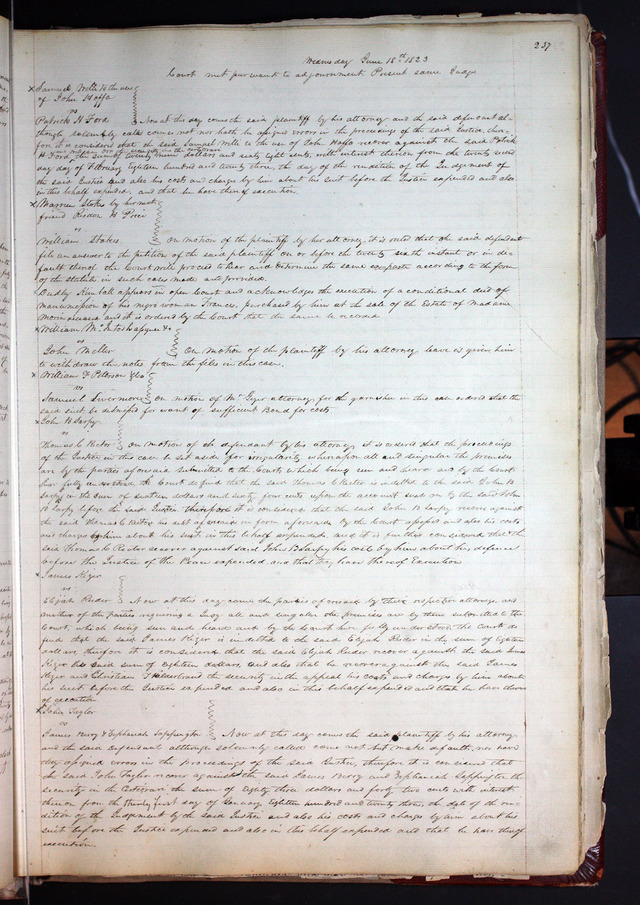 237
Wednesday June 18th 1823
Court met pursuant to adjournment Present same Judge
x Samuel Wells to the use
of John Hoffa
vs
Patrick H Ford Now at this day comes the said plaintiff by his attorney and the said defendant al-
though solemnly called comes not nor hath he assigned errors in the proceedings of the said Justice, there-
fore it is considered that the said Samuel Wells to the use of John Hoffa recover against the said Patrick
H Ford the sum of twenty nine dollars and sixty eight cents, with interest thereon from the twenty
day of February eighteen hundred and twenty three, the day of the rendition of the Judgement of
the said Justice and also his costs and charges by him about his suit before the Justice expended and also
in this behalf expended, and that he have thereof execution
x Warren Stokes by her next
friend
vs
William Stokes On motion of the plaintiff by her attorney, it is ruled that the said defendant
file an answer to the petition of the said plaintiff on or before the twenty sixth instant or in de-
fault thereof the Court will proceed to hear and determine the same exparte according to the form
of the Statute in such cases made and provided.
appears in open Court and acknowledges the execution of a conditional deed of
manumission of his negro woman Frances, purchased by him at the sale of the Estate of Madame
and it is ordered by the Court that the same be recorded
x William McIntosh assignee &c
vs
John Miller On motion of the plaintiff by his attorney leave is given him
to withdraw the notes from the files in this case.
x William F Peterson & Co
vs
Samuel Livermore On motion of Mr Geyer attorney for the garnishee in this case ordered that the
said suit be dismissed for want of sufficient Bond for costs.
x John B Sarpy
vs
Thomas C Rector On motion of the defendant by his attorney it is ordered that the proceedings
of the Justice in this case be set aside for irregularity whereupon all and singular the premises
are by the parties aforesaid submitted to the Court, which being seen and heard and by the Court
fully understood the Court do find that the said Thomas C Rector is indebted to the said John B
Sarpy in the sum of sixteen dollars and sixty four cents upon the account sued on by the said John
B Sarpy before the said Justice therefore it is considered that the said John B Sarpy recover against
the said Thomas C Rector his debt aforesaid in form aforesaid by the Court assessed and also his costs
and charges by him about his suit in this behalf expended. and it is further considered that the
said Thomas C Rector recover against said John B Sarpy his costs by him about his defence
before the Justice of the Peace expended, and that they have thereof Execution
x James Kiger
vs
Elijah Rector Now at this day come the parties aforesaid by their respective attorneys, and
neither of the parties requiring a Jury all and singular the premises are by them submitted to the
Court, which being seen and heard and by the Court here fully understood the Court do
find that the said James Kiger is indebted to the said Elijah Rector in the sum of eighteen
dollars, therefore it is considered that the said Elijah Rector recover against the said James
Kiger his said sum of eighteen dollars, and also that he recover against the said James
Kiger and Christian F Hilderbrand the security in the appeal his costs and charges by him about
his suit before the Justice expended and also in this behalf expended and that he have thereof
execution
x John Taylor
vs
James Berry & Zephaniah Sappington Now at this day comes the said plaintiff by his attorney
and the said defendant although solemnly called come not but make default, nor have
they assigned errors in the proceedings of the said Justice, therefore it is considered that
the said John Taylor recover against the said James Berry and Zephaniah Sappington the
security in the Certiorari the sum of eighty three dollars and forty two cents with interest
thereon from the thirty first day of January eighteen hundred and twenty three, the date of the ren-
dition of the Judgement by the said Justice and also his costs and charges by him about his
suit before the Justice expended and also in this behalf expended and that he have thereof
execution.